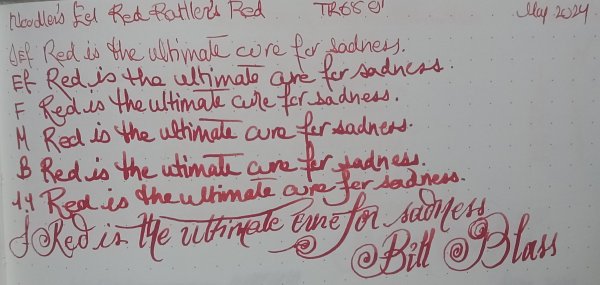 Noodler's Eel Red Rattler's Red TR68 May 2024
Jef Red is the ultimate cure for sadness.
Ef Red is the ultimate cure for sadness.
F Red is the ultimate cure for sadness.
M Red is the ultimate cure for sadness.
B Red is the utimate cure for sadness.
1.1 Red is the ultimate cure for sadness.
f Red is the ultimate cure for sadness
Bill Blass